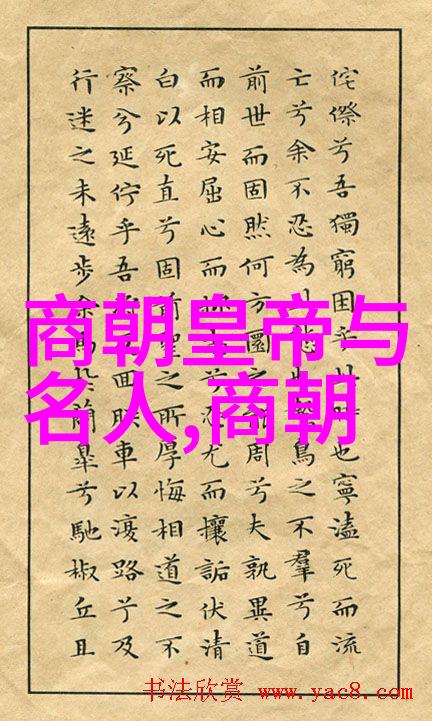 侘傺兮吾獨窮困乎此時也寧溘死而流
亡兮余不忍為此態也鷙鳥之不羣兮自
前世而固然何方圜之能周兮夫孰異道
而相安屈心而抑志兮忍尤而攘詬伏清
白以死直兮固前聖之所厚悔相道之不
察兮延佇乎吾將反回朕車以復路兮及
行迷之未遠步余馬於蘭皋兮馳椒丘且
商朝皇帝与
名人,商朝
书法欣赏 www.yac8.com